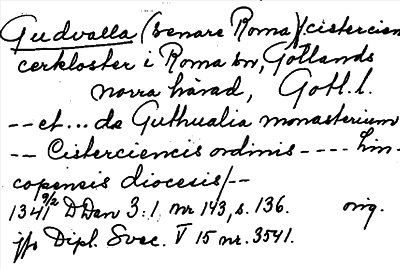 Gudvalla (senare Roma) (cistercien
cerkloster i Roma sn, Gotlands
norra härad, Gotl. l.
-- et ... de Guthualia monasterium
-- Cisterciencis ordinis ---- Lin-
copensis diocesis/--
1341 9/2 DDan 3:1 nr 143, s. 136. orig.
jfr Dipl. Svec. V 15 nr. 3541.